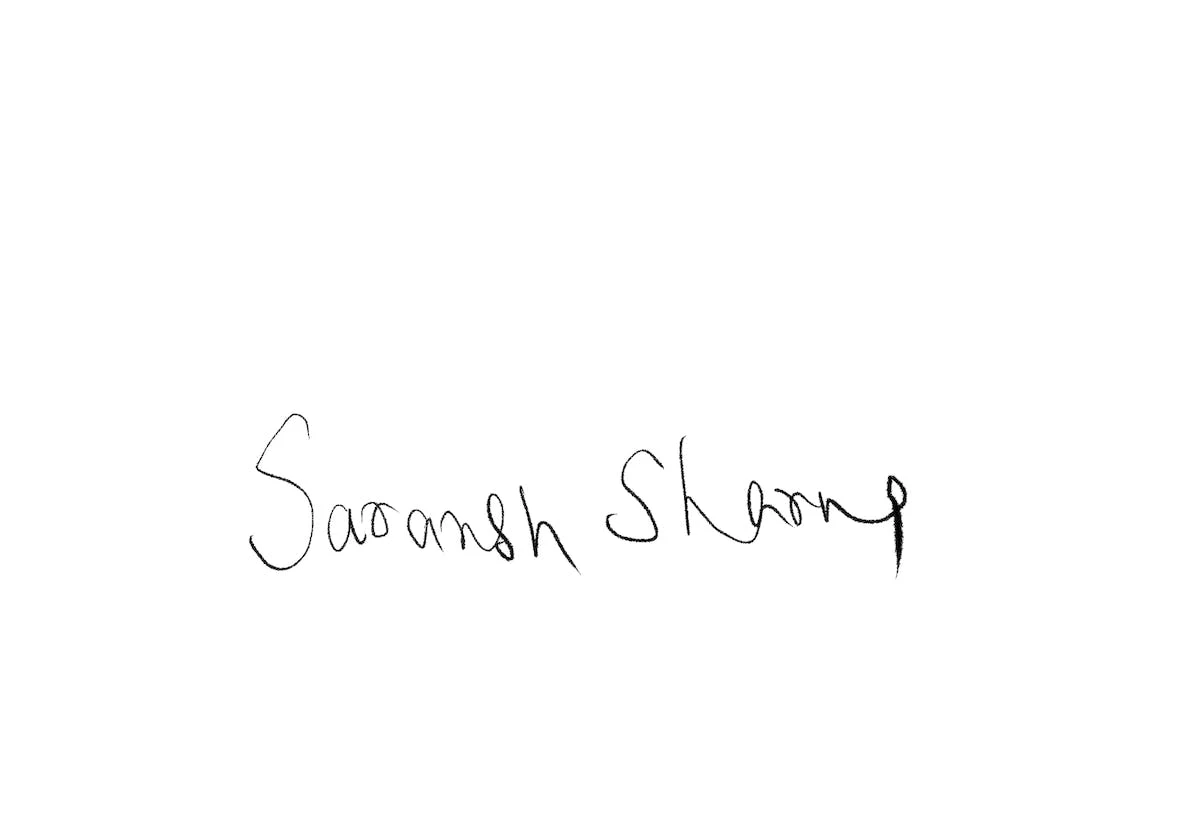 Saransh Sharma